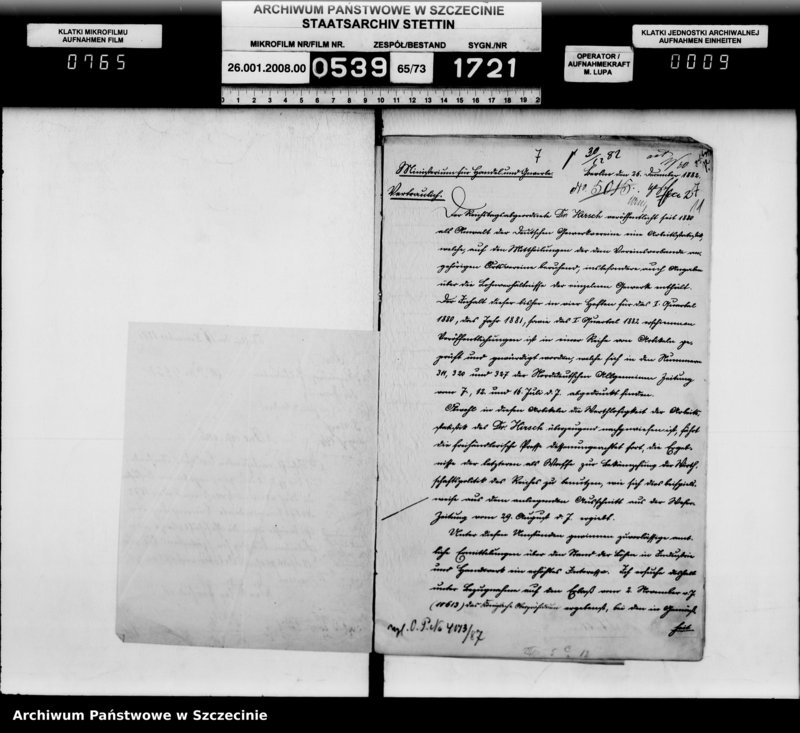 ARCHIWUM PAŃSTWOWE W SZCZECINIE
STAATSARCHIV STETTIN
MIKROFILM NR/FILM NR. ZESPÓŁ/BESTAND SYGN./NR
26.001.2008.00 0539 65/73 1721
KLATKI MIKROFILMU
AUFNAHMEN FILM
0765
OPERATOR /
AUFNAHMEKRAFT
M. LUPA
KLATKI JEDNOSTKI ARCHIWALNEJ
AUFNAHMEN EINHEITEN
0009
0 1 2 3 4 5 6 7 8 9 10 11 12 13 14 15 16 17 18 19 2
7
30/12 82
Ministerium für Handel und Gewerbe
Berlin den 26. Dezember 1882.
Vertraulich.
No 5015.
Der Reichstagsabgeordnete Dr. Hirsch veröffentlicht seit 1880
als Anwalt der deutschen Gewerkvereine eine Arbeitsstatistik,
welche, auf den Mittheilungen der dem Vereinsverbande an-
gehörigen Ortsvereine beruhend, insbesondere auch Angaben
über die Lohnverhältnisse der einzelnen Gewerbe enthält.
Der Inhalt dieser bisher in vier Heften für das I. Quartal
1880, das Jahr 1881, sowie das I. Quartal 1882 erschienenen
Veröffentlichungen ist in einer Reihe von Artikeln ge-
prüft und gewürdigt worden, welche sich in den Nummern
311, 320 und 327 der Norddeutschen Allgemeinen Zeitung
vom 7., 12. und 16. Juli d. J. abgedruckt finden.
Obwohl in diesen Artikeln die Werthlosigkeit der Arbeits-
statistik des Dr. Hirsch überzeugend nachgewiesen ist, fährt
die freihändlerische Presse dessenungeachtet fort, die Ergeb-
nisse der letzteren als Waffe zur Bekämpfung der Wirth-
schaftspolitik des Reiches zu benutzen, wie sich dies beispiels-
weise aus dem anliegenden Ausschnitt aus der Weser
Zeitung vom 29. August d. J. ergiebt.
Unter diesen Umständen gewinnen zuverlässige amt-
liche Ermittelungen über den Stand der Löhne in Industrie
und Handwerk ein erhöhtes Interesse. Ich ersuche deshalb
unter Bezugnahme auf den Erlaß vom 2. November v. J.
das Königliche Regierungs ergebenst, bei den in Gemäß-
heit
Archiwum Państwowe w Szczecinie